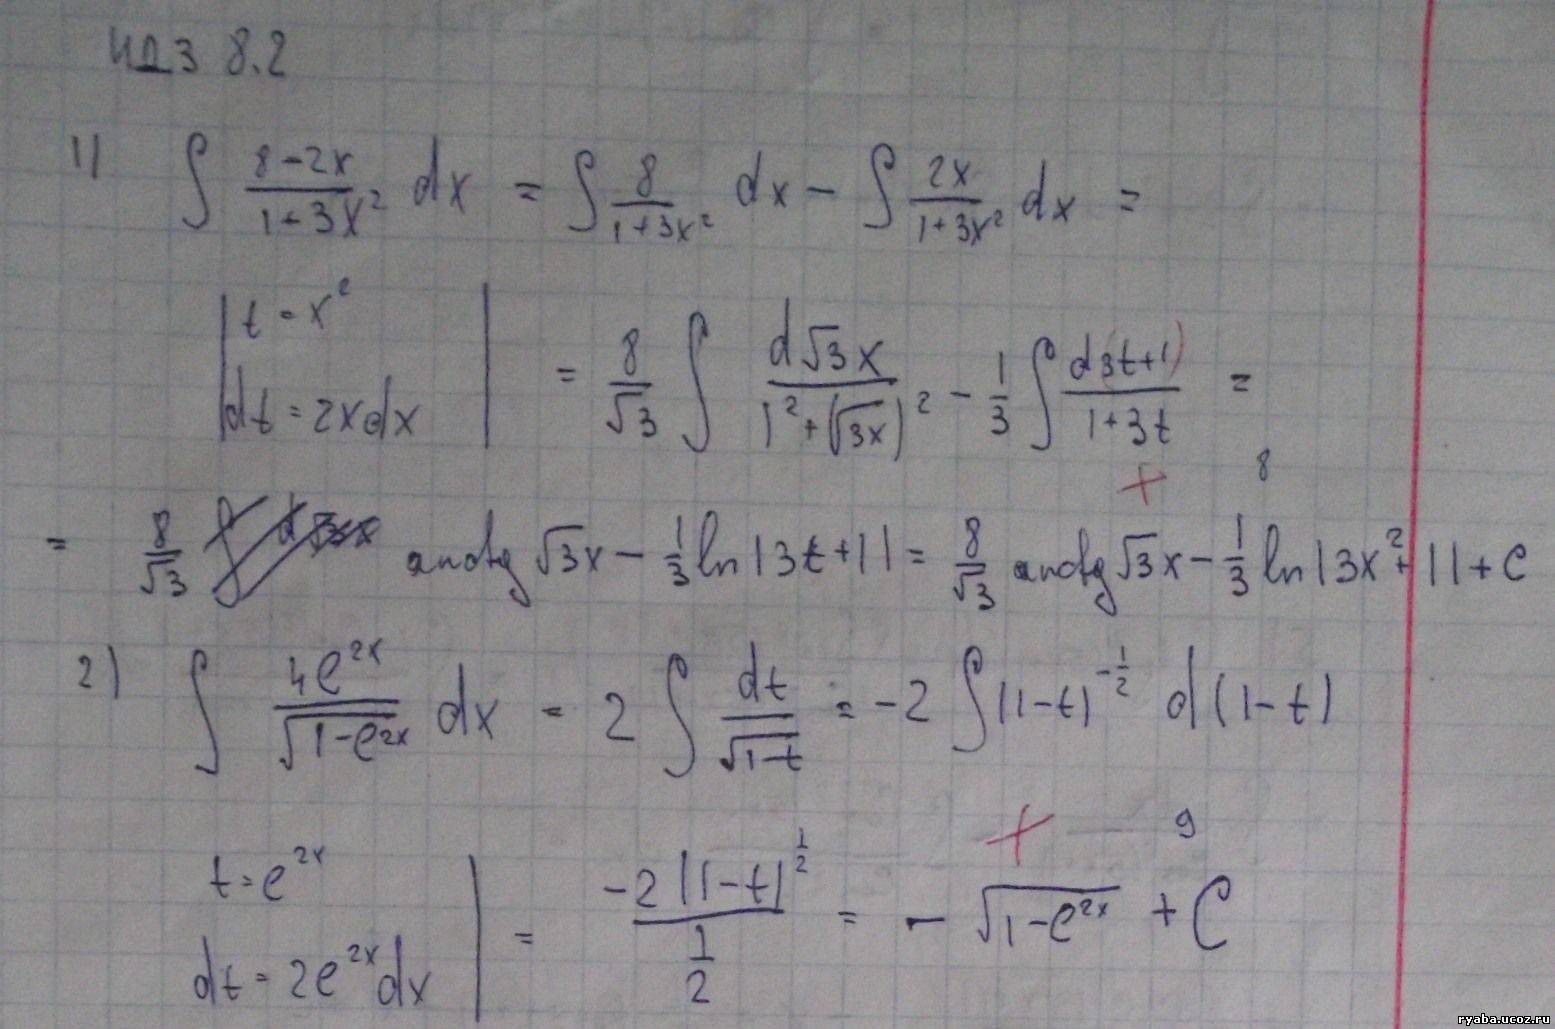 ИДЗ 8.2
1) ∫ (8-2x)/(1+3x²) dx = ∫ 8/(1+3x²) dx - ∫ 2x/(1+3x²) dx =
| t = x² | = 8/√3 ∫ d√3x/(1²+(√3x)²) - 1/3 ∫ d(3t+1)/(1+3t) =
| dt = 2xdx |
+ 8
= 8/√3 arctg √3x - 1/3 ln|3t+1| = 8/√3 arctg √3x - 1/3 ln|3x²+1| + C
2) ∫ 4e^(2x)/√(1-e^(2x)) dx = 2 ∫ dt/√(1-t) = -2 ∫ (1-t)^(-1/2) d(1-t)
+ 9
t = e^(2x) | = -2(1-t)^(1/2)/(1/2) = - √(1-e^(2x)) + C
dt = 2e^(2x)dx |
ryaba.ucoz.ru